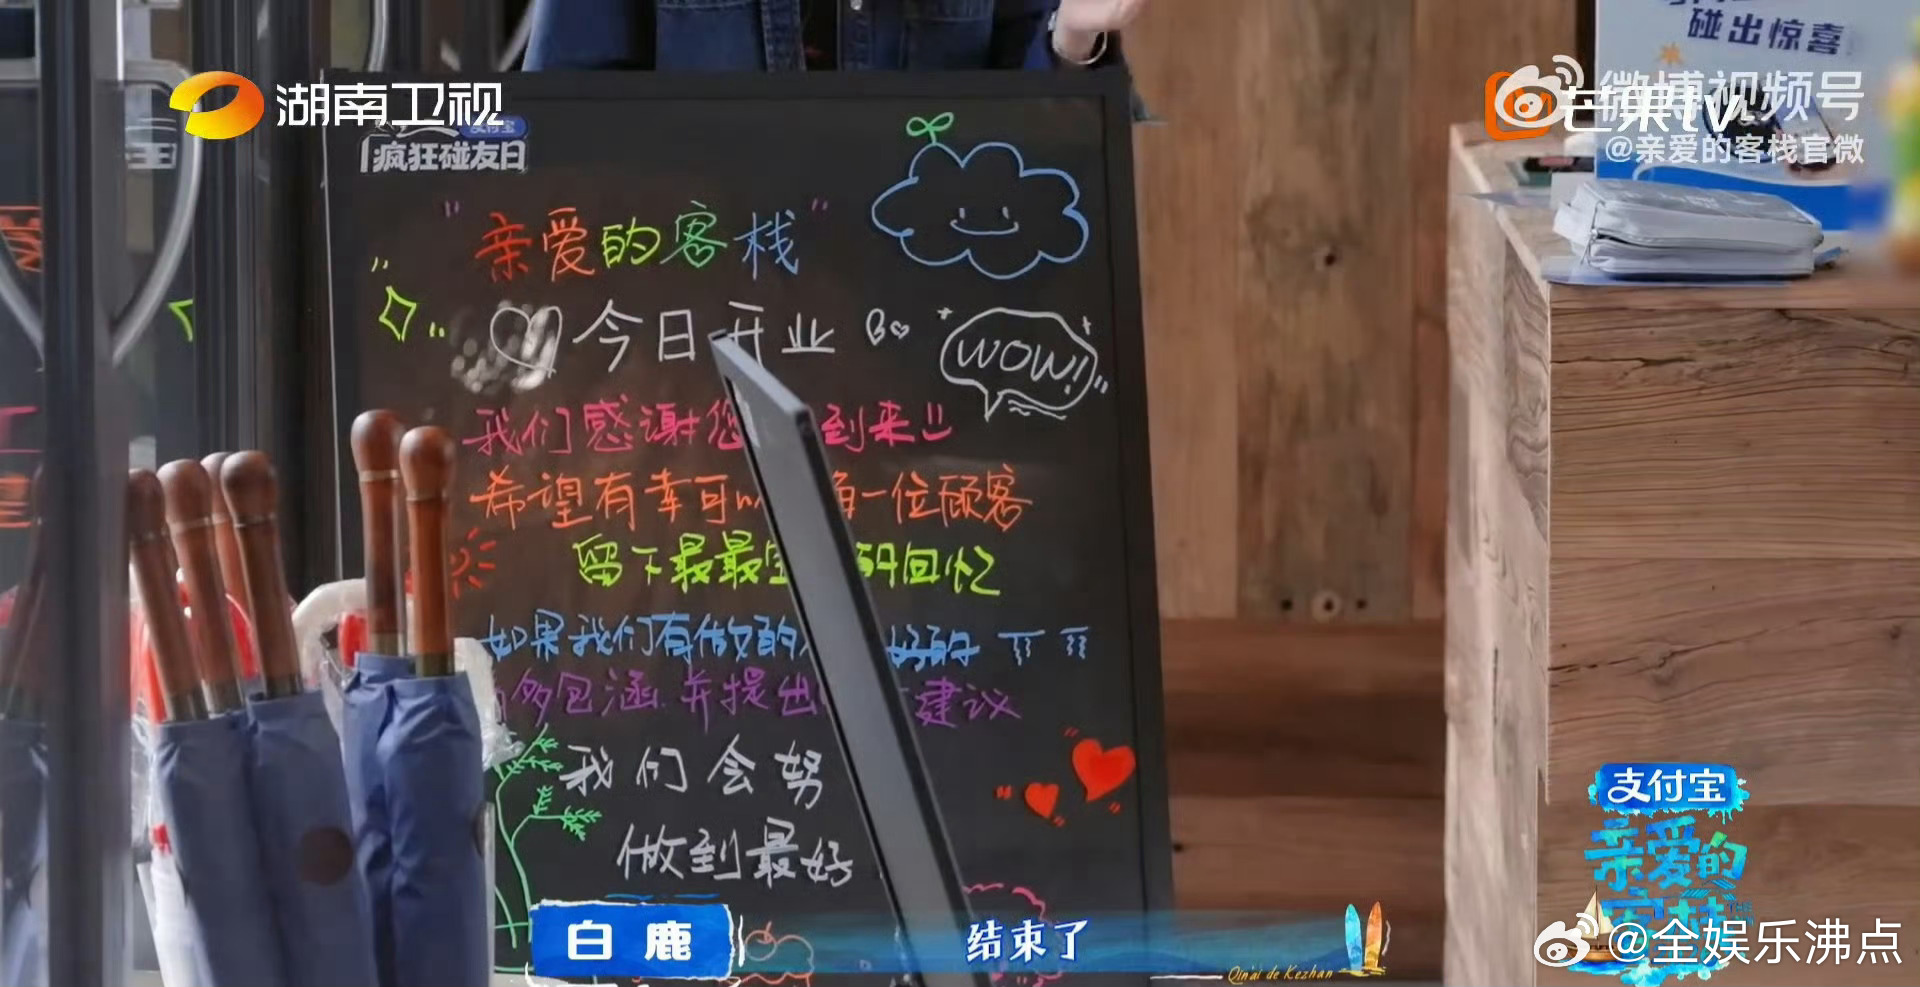 碰出惊喜
湖南卫视
微博视频号
芒果tv
@亲爱的客栈官微
支付宝
疯狂碰友日
"亲爱的客栈"
今日开业
WOW!
我们感谢您 到来
希望有幸可以 每一位顾客
留下最最宝 的回忆
如果我们有做的 好的
多包涵.并提出 建议
我们会努
做到最好
支付宝
亲爱的
客栈
白鹿
结束了
Qin'ai de Kezhan
@全娱乐沸点